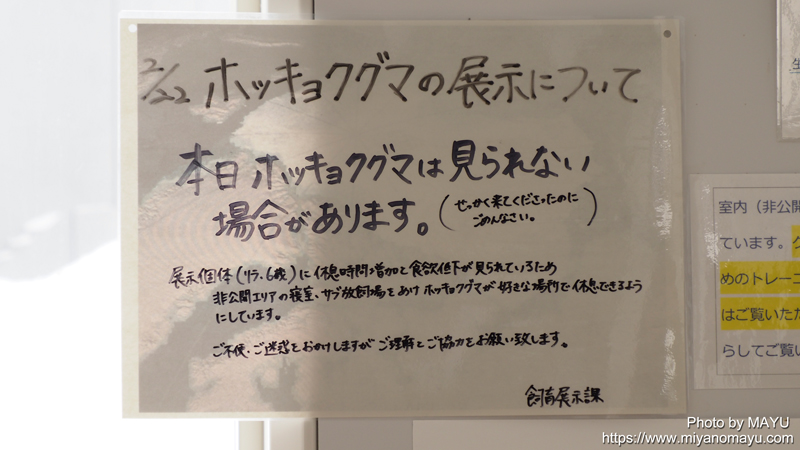 2/22 ホッキョクグマの展示について
本日ホッキョクグマは見られない
場合があります。(せっかく来てくださったのに
ごめんなさい。)
展示個体(リラ、6歳)に休息時間増加と食欲低下が見られているため
非公開エリアの寝室、サブ放飼場をあけホッキョクグマが好きな場所で休息できるよう
にしています。
ご不便・ご迷惑をおかけしますがご理解とご協力をお願い致します。
飼育展示課
室内(非公開
ています。
めのトレーニ
はご覧いただ
らしてご覧い
Photo by MAYU
https://www.miyanomayu.com/